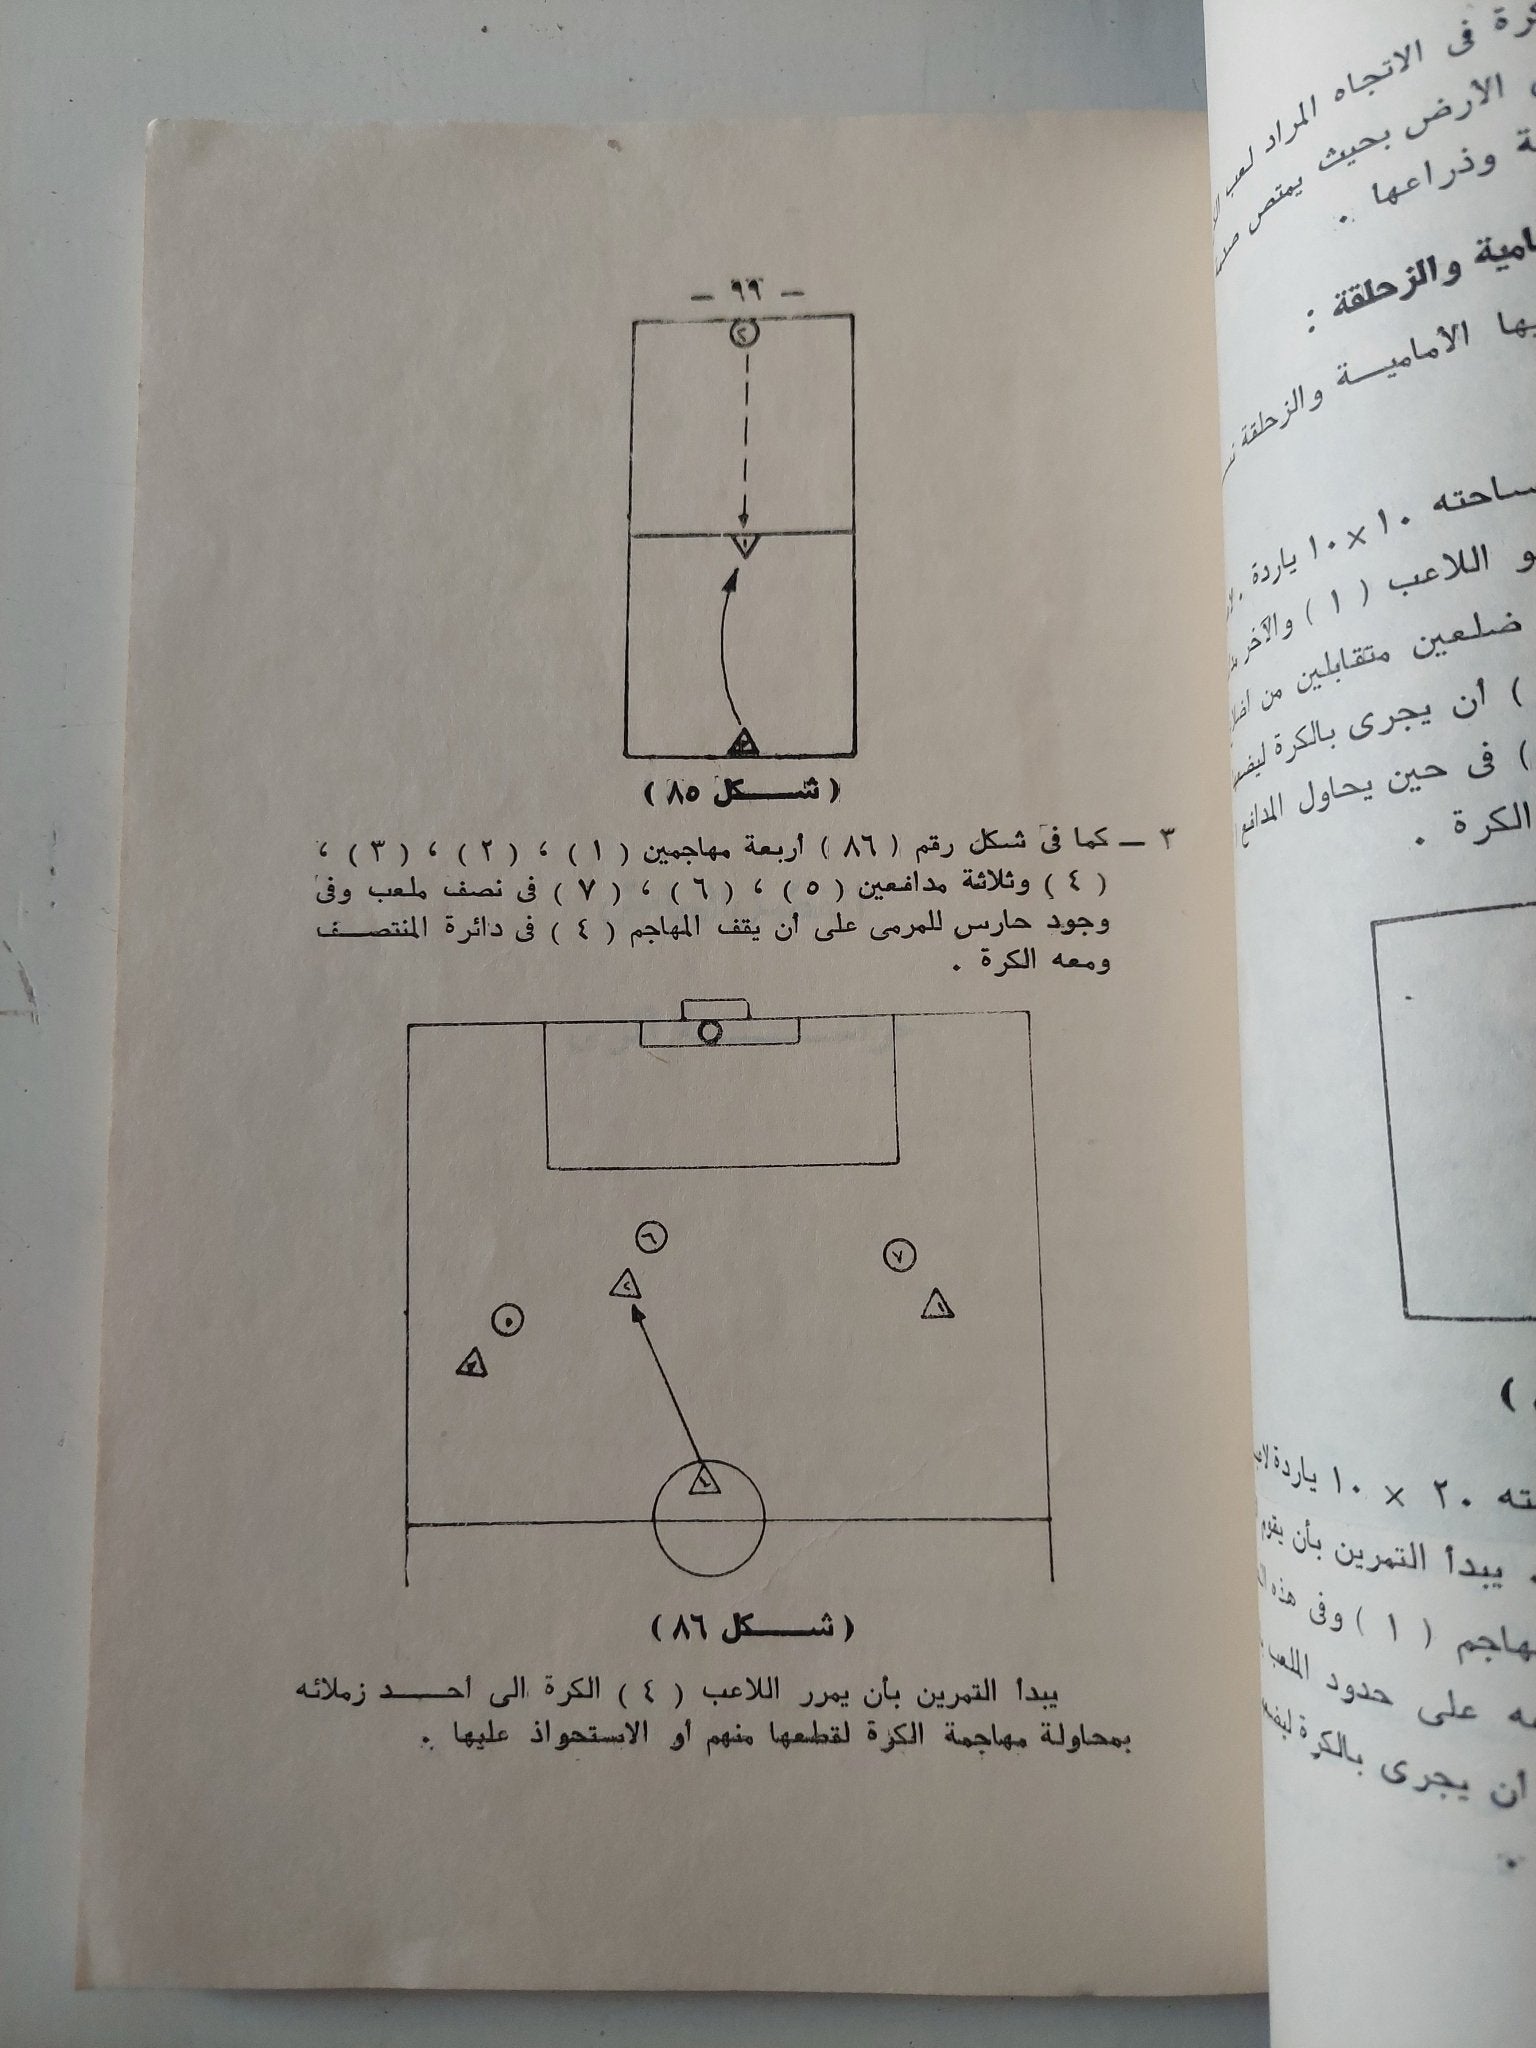 - ٩٩ -
٢
١
٣
( شـــكل ٨٥ )
٣ — كما فى شكل رقم ( ٨٦ ) أربعة مهاجمين ( ١ ) ، ( ٢ ) ، ( ٣ ) ،
( ٤ ) وثلاثة مدافعين ( ٥ ) ، ( ٦ ) ، ( ٧ ) فى نصف ملعب وفى
وجود حارس للمرمى على أن يقف المهاجم ( ٤ ) فى دائرة المنتصـف
ومعه الكرة .
٦
٧
٢
١
٥
٣
٤
( شـــكل ٨٦ )
يبدأ التمرين بأن يمرر اللاعب ( ٤ ) الكرة الى أحـــد زملائه
بمحاولة مهاجمة الكرة لقطعها منهم أو الاستحواذ عليها .
فى الاتجاه المراد لعب
الأرض بحيث يمتص
وذراعها .
والزحلقة :
الأماميـــة والزحلقة
١٠×١٠ ياردة .
اللاعب ( ١ ) والآخر
ضلعين متقابلين من
) أن يجرى بالكرة
) فى حين يحاول المدافع
الكرة .
)
٢٠ × ١٠ ياردة
. يبدأ التمرين بأن يقوم
( ١ ) وفى هذه
على حدود الملعب
أن يجرى بالكرة
.